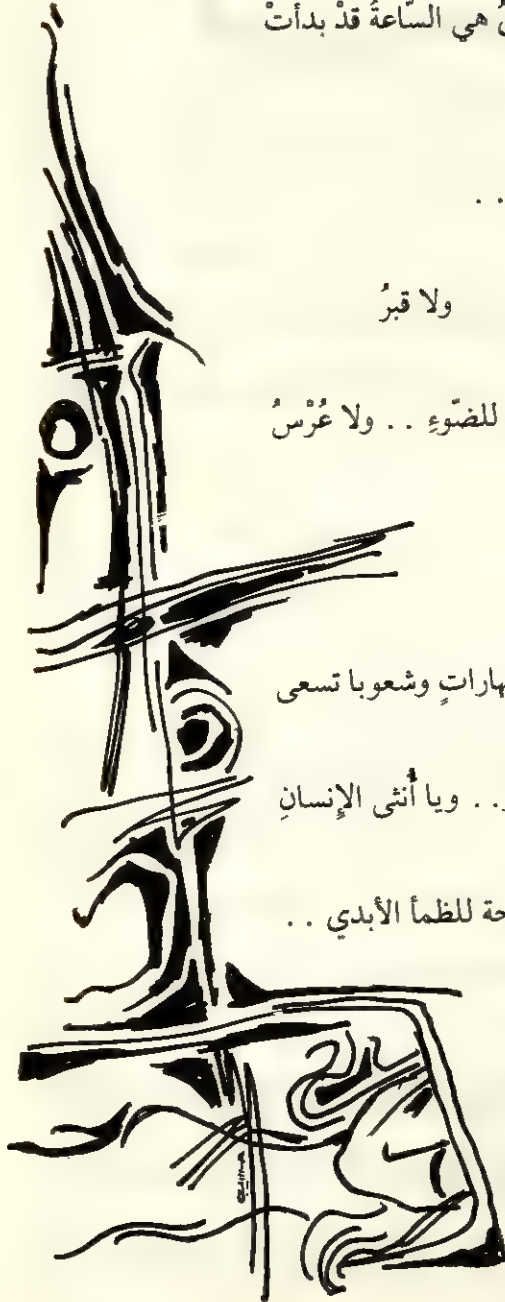 هي السّاعةُ قدْ بدأتْ
. .
ولا قبرُ
للضّوءِ . . ولا عُرْسُ
وشعوبا تسعى
. . ويا أُنثى الإِنسانِ
للظمأ الأبدي . .